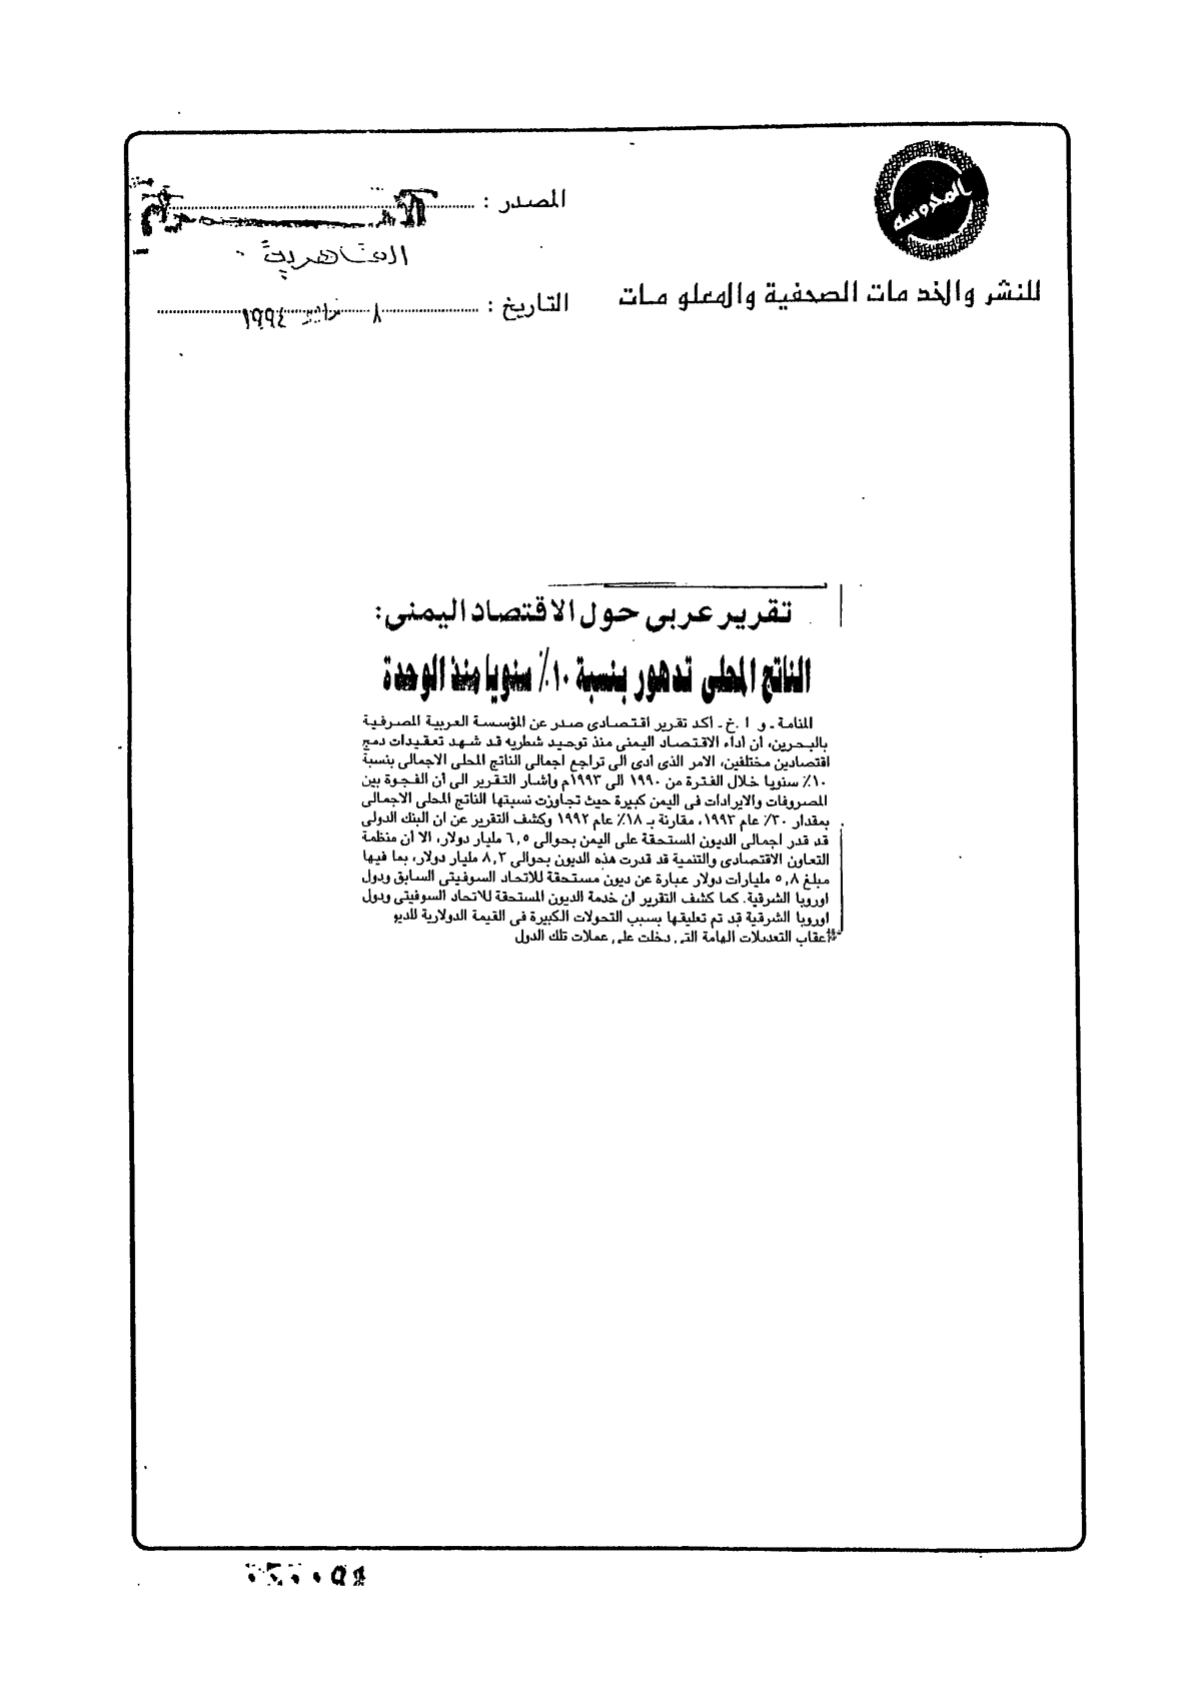 المحروسة
للنشر والخدمات الصحفية والمعلومات
المصدر :
القاهرية
التاريخ : ٨ ١٩٩٤
تقرير عربى حول الاقتصاد اليمنى:
الناتج المحلى تدهور بنسبة ١٠٪ سنويا منذ الوحدة
المنامة ـ و ا .خ ـ أكد تقرير اقتصادى صدر عن المؤسسة العربية المصرفية
بالبحرين، أن أداء الاقتصاد اليمنى منذ توحيد شطريه قد شهد تعقيدات دمج
اقتصادين مختلفين، الامر الذى أدى الى تراجع اجمالى الناتج المحلى الاجمالى بنسبة
١٠٪ سنويا خلال الفترة من ١٩٩٠ الى ١٩٩٣م وأشار التقرير الى أن الفجوة بين
المصروفات والايرادات فى اليمن كبيرة حيث تجاوزت نسبتها الناتج المحلى الاجمالى
بمقدار ٣٠٪ عام ١٩٩٣، مقارنة بـ ١٨٪ عام ١٩٩٢ وكشف التقرير عن ان البنك الدولى
قد قدر اجمالى الديون المستحقة على اليمن بحوالى ٦,٥ مليار دولار، الا أن منظمة
التعاون الاقتصادى والتنمية قد قدرت هذه الديون بحوالى ٨,٣ مليار دولار، بما فيها
مبلغ ٥,٨ مليارات دولار عبارة عن ديون مستحقة للاتحاد السوفيتى السابق ودول
اوروبا الشرقية. كما كشف التقرير ان خدمة الديون المستحقة للاتحاد السوفيتى ودول
اوروبا الشرقية قد تم تعليقها بسبب التحولات الكبيرة فى القيمة الدولارية للديو
اعقاب التعديلات الهامة التى دخلت على عملات تلك الدول